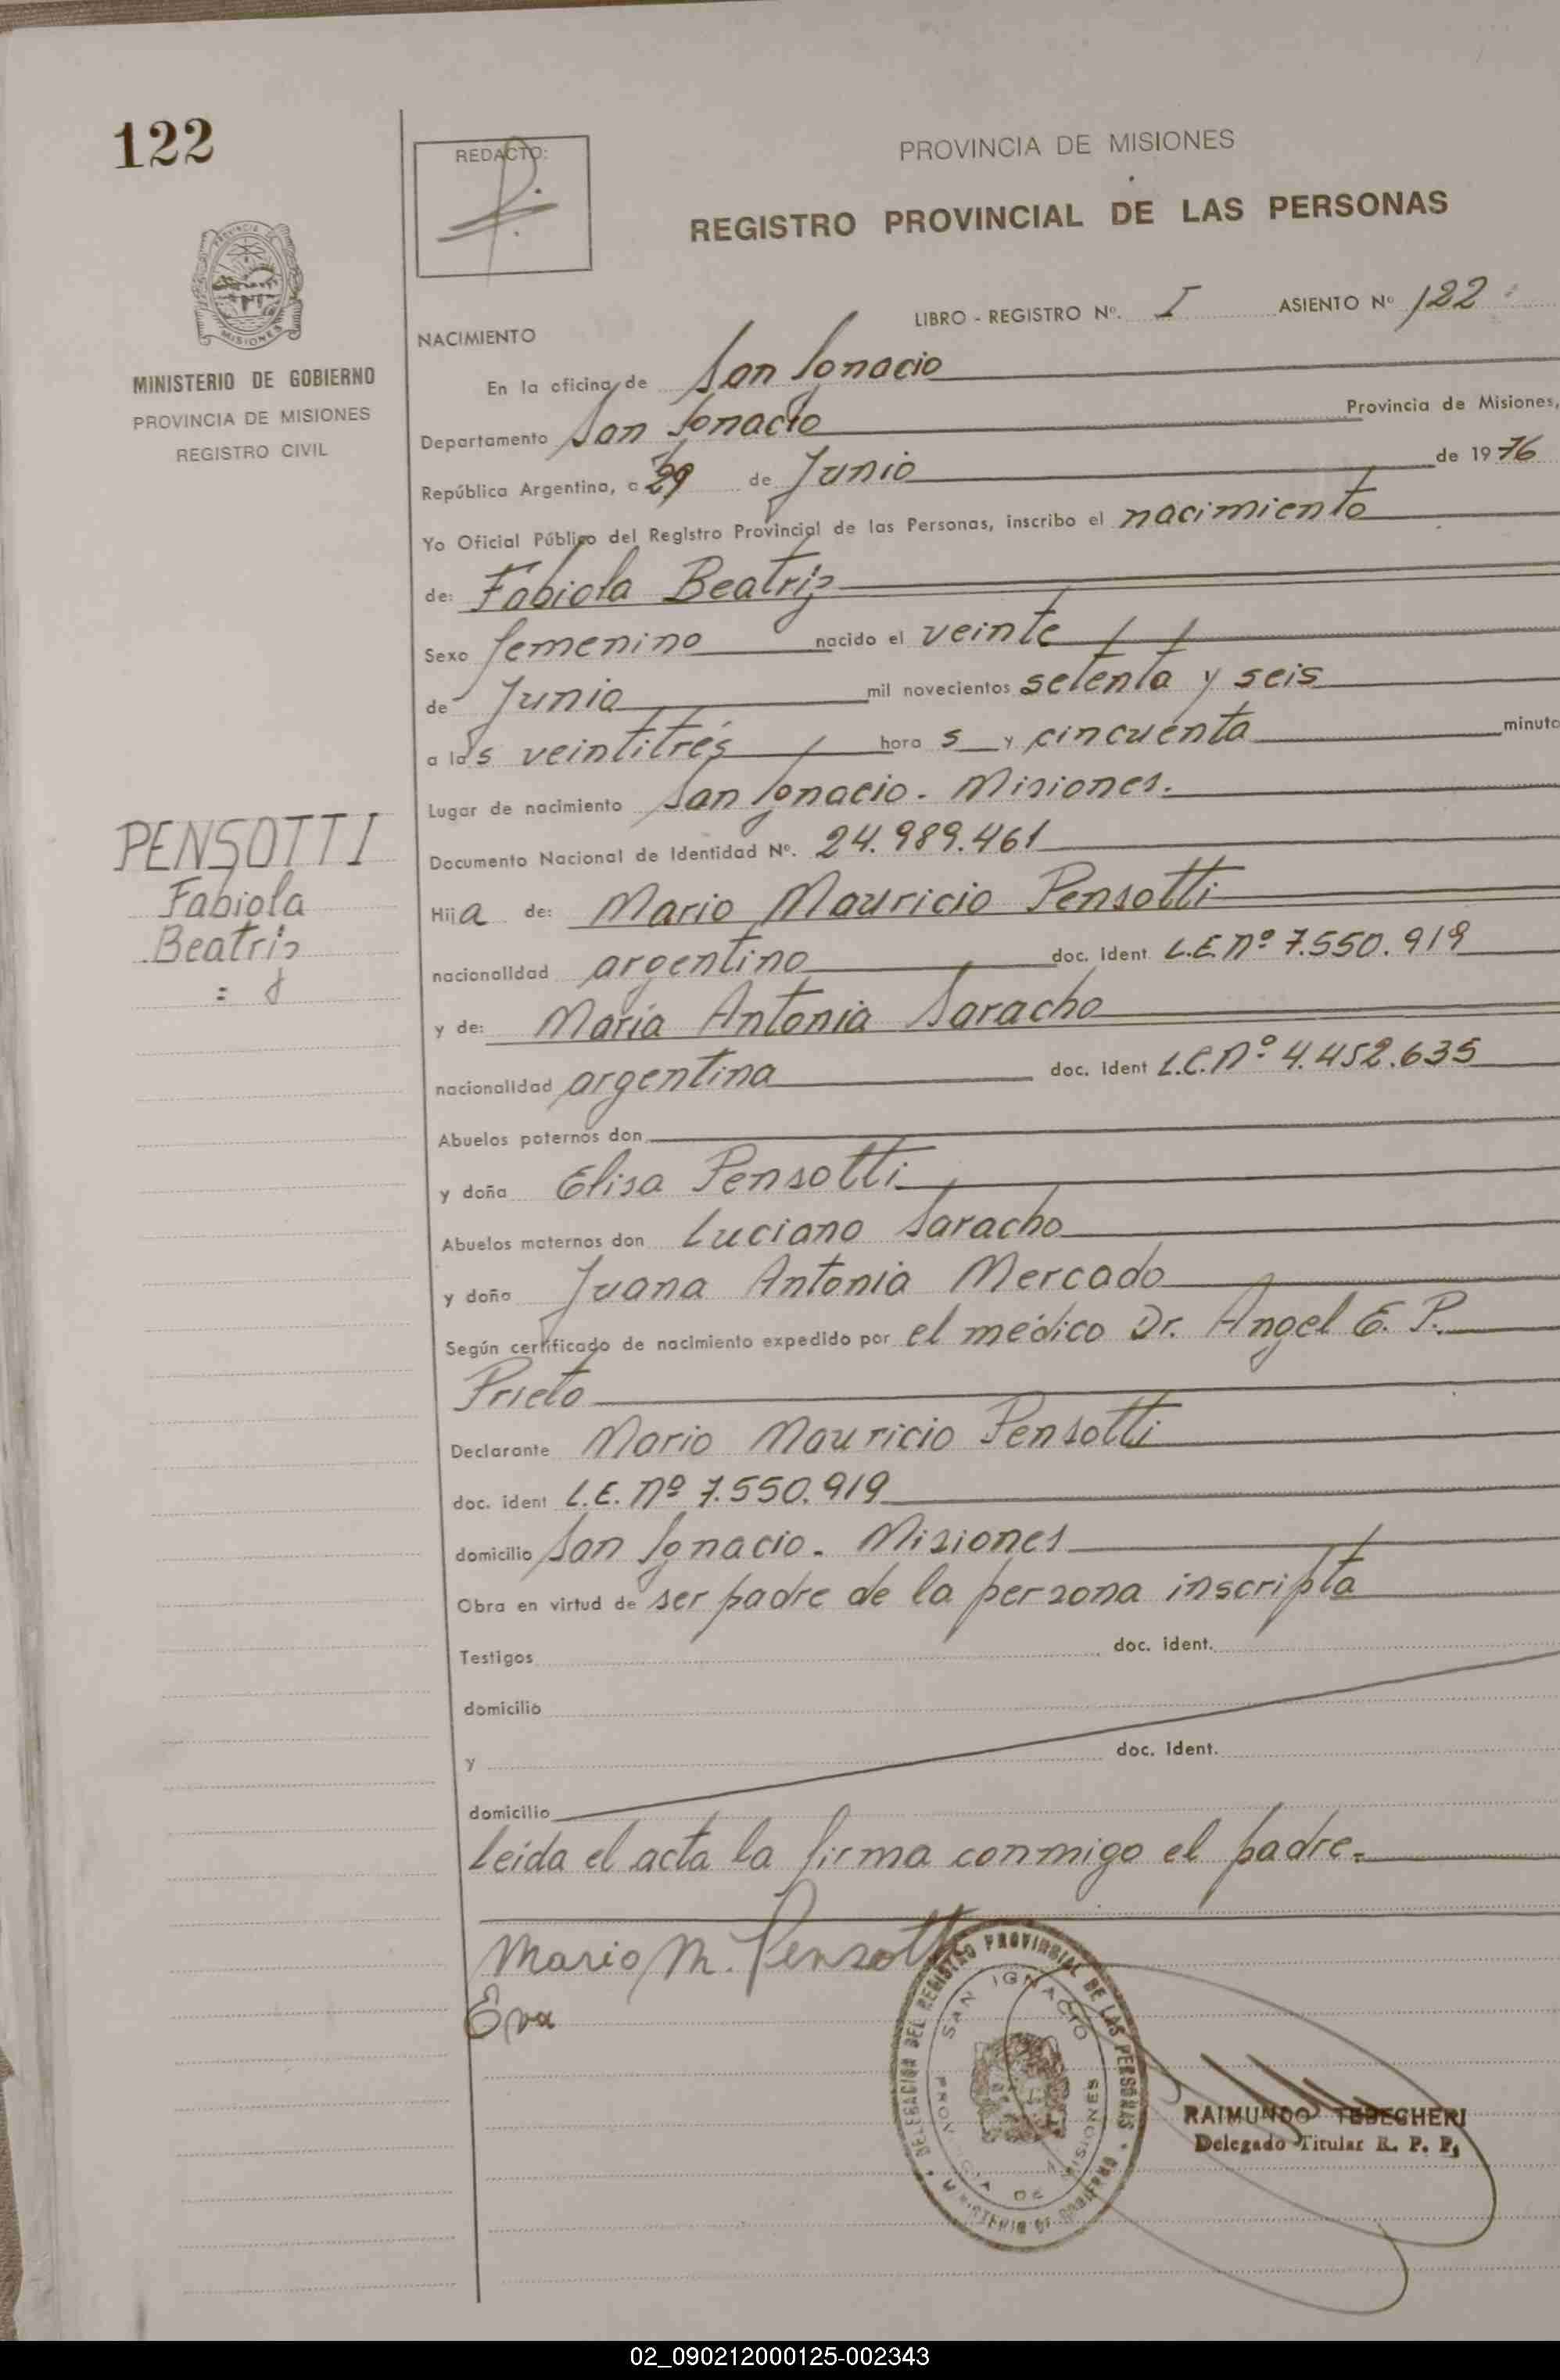 122
REDACTO:
PROVINCIA DE MISIONES
REGISTRO PROVINCIAL DE LAS PERSONAS
PROVINCIA
MISIONES
MINISTERIO DE GOBIERNO
PROVINCIA DE MISIONES
REGISTRO CIVIL
LIBRO - REGISTRO Nº. I ASIENTO Nº 122
NACIMIENTO
En la oficina de San Ignacio
Departamento San Ignacio Provincia de Misiones,
República Argentina, a 29 de Junio de 1976
Yo Oficial Público del Registro Provincial de las Personas, inscribo el nacimiento
de: Fabiola Beatriz
Sexo femenino nacido el veinte
de Junio mil novecientos setenta y seis
a las veintitrés hora s y cincuenta minuto
Lugar de nacimiento San Ignacio - Misiones.
PENSOTTI
Fabiola
Beatriz
Documento Nacional de Identidad Nº. 24.989.461
Hija de: Mario Mauricio Pensotti
nacionalidad argentino doc. ident L.E. Nº 7.550.919
y de: María Antonia Saracho
nacionalidad argentina doc. ident L.C. Nº 4.452.635
Abuelos paternos don
y doña Elisa Pensotti
Abuelos maternos don Luciano Saracho
y doña Juana Antonia Mercado
Según certificado de nacimiento expedido por el médico Dr. Angel E. P.
Prieto
Declarante Mario Mauricio Pensotti
doc. ident L.E. Nº 7.550.919
domicilio San Ignacio - Misiones
Obra en virtud de ser padre de la persona inscripta
Testigos doc. ident.
domicilio
y doc. ident.
domicilio
Leída el acta la firma conmigo el padre.
Mario M. Pensotti
Eva
DELEGACION DEL REGISTRO PROVINCIAL DE LAS PERSONAS
MINISTERIO DE GOBIERNO
SAN IGNACIO
PROVINCIA DE MISIONES
RAIMUNDO
Delegado Titular R. P. P.
02_090212000125-002343